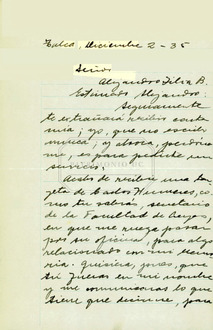 Talca, Diciembre 2 - 35
Señor
Alejandro Silva B.
Estimado Alejandro:
Seguramente
te extrañará recibir carta
mía; yo, que no escribo
nunca; y ahora, perdóna
me, es para pedirte un
servicio:
Acabo de recibir una tar
jeta de Carlos Humeres, co
mo tu sabrás, secretario
de la Facultad de
en que me ruega pasar
por su oficina, para algo
relacionado con mi memo
ria. Quisiera, pues, que
tú fueras en mi nombre
y me comunicaras lo que
tiene que decirme, para